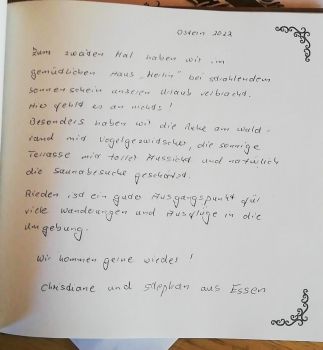 Ostern 2022
Zum zweiten Mal haben wir im
gemütlichen Haus „Heilin" bei strahlendem
Sonnenschein unseren Urlaub verbracht.
Hier fehlt es an nichts!
Besonders haben wir die Ruhe am Wald-
rand mit Vogelgezwitscher, die sonnige
Terrasse mit toller Aussicht und natürlich
die Saunabesuche geschätzt.
Rieden ist ein guter Ausgangspunkt für
viele Wanderungen und Ausflüge in die
Umgebung.
Wir kommen gerne wieder!
Christiane und Stephan aus Essen